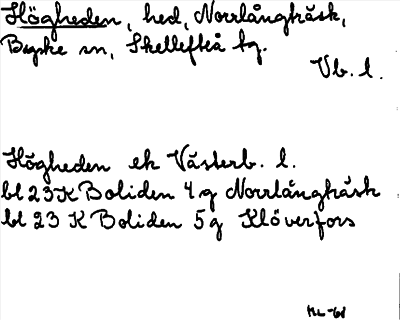 Högheden, hed, Norrlångträsk,
Byske sn, Skellefteå tg.
Vb. l.
Högheden ek Västerb. l.
bl 23 K Boliden 4 g Norrlångträsk
bl 23 K Boliden 5 g Klöverfors